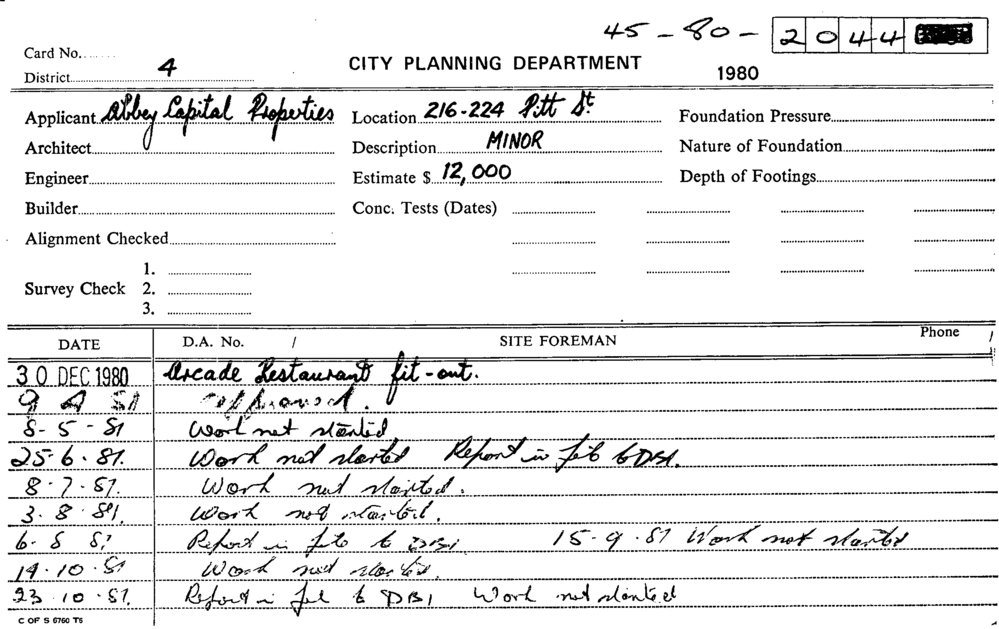 45-80-2044
Card No.
District 4
CITY PLANNING DEPARTMENT
1980
Applicant Abbey Capital Properties
Location 216-224 Pitt St.
Foundation Pressure
Architect
Description MINOR
Nature of Foundation
Engineer
Estimate $ 12,000
Depth of Footings
Builder
Conc. Tests (Dates)
Alignment Checked
1.
Survey Check 2.
3.
DATE D.A. No. / SITE FOREMAN Phone /
30 DEC 1980 Arcade Restaurant fit-out.
9 4 81 Approved.
8-5-81 Work not started
25-6-81. Work not started Report in file to DBI.
8-7-81. Work not started.
3.8.81. Work not started.
6-8 81 Report in file to DBI 15-9-81 Work not started
14-10-81 Work not started.
23-10-81. Report in file to DBI Work not started
C OF S 6760 T6